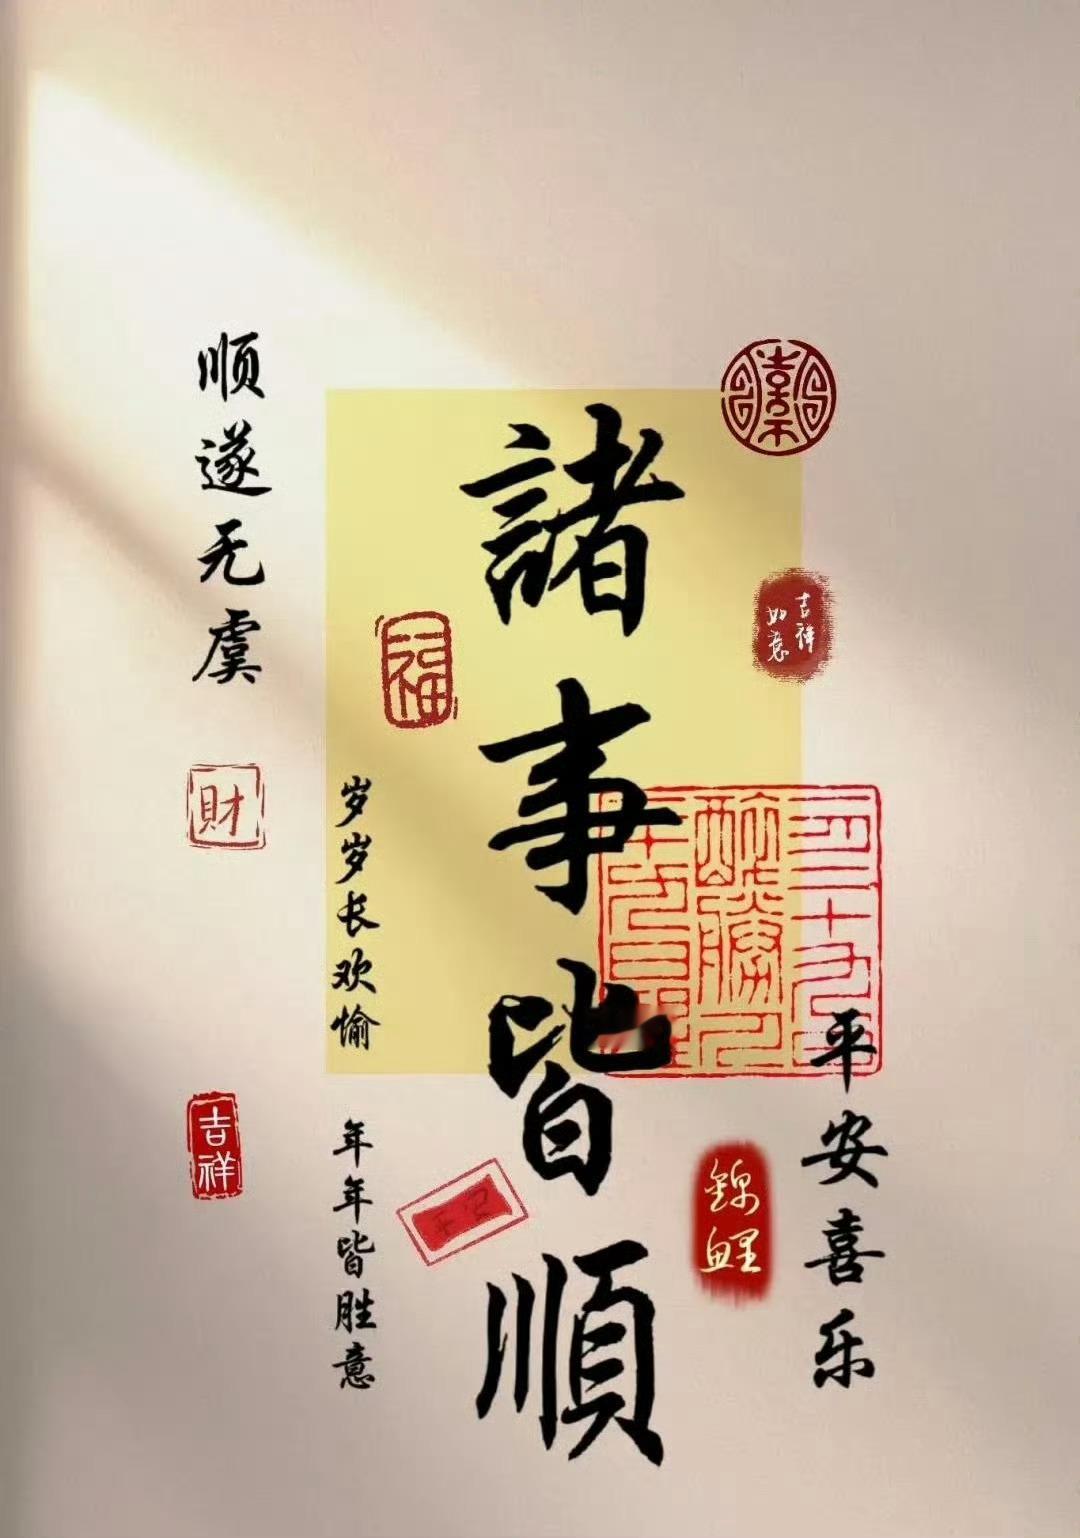 諸事皆順
顺遂无虞
岁岁长欢愉
年年皆胜意
平安喜乐
吉祥
如意
福
財
吉祥
錦鯉